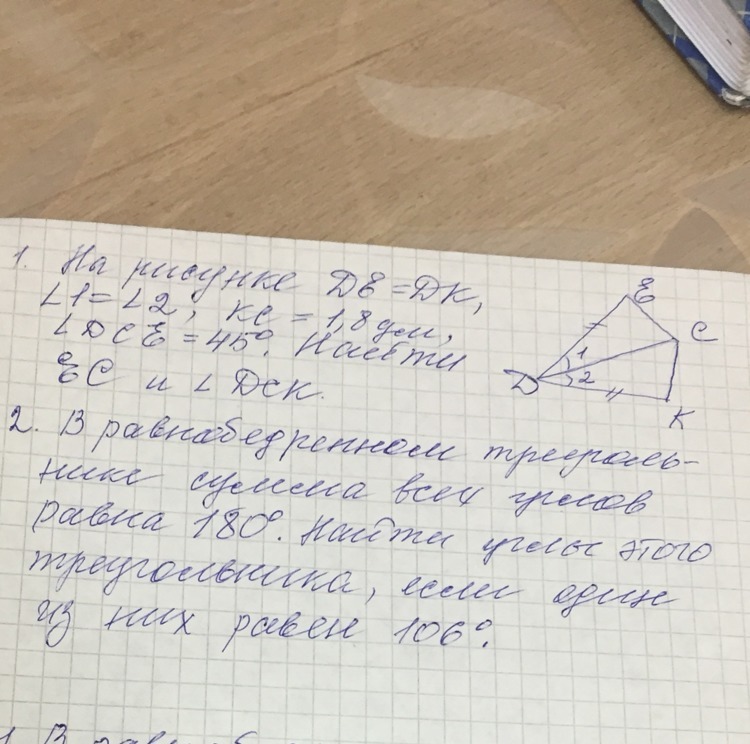 1. На рисунке DE=DK,
∠1=∠2, KC=1,8дм,
∠DCE=45°. Найти
EC и ∠DCK.
E
C
1
2
D
K
2. В равнобедренном треуголь-
нике сумма всех углов
равна 180°. Найти углы этого
треугольника, если один
из них равен 106°.
1. В